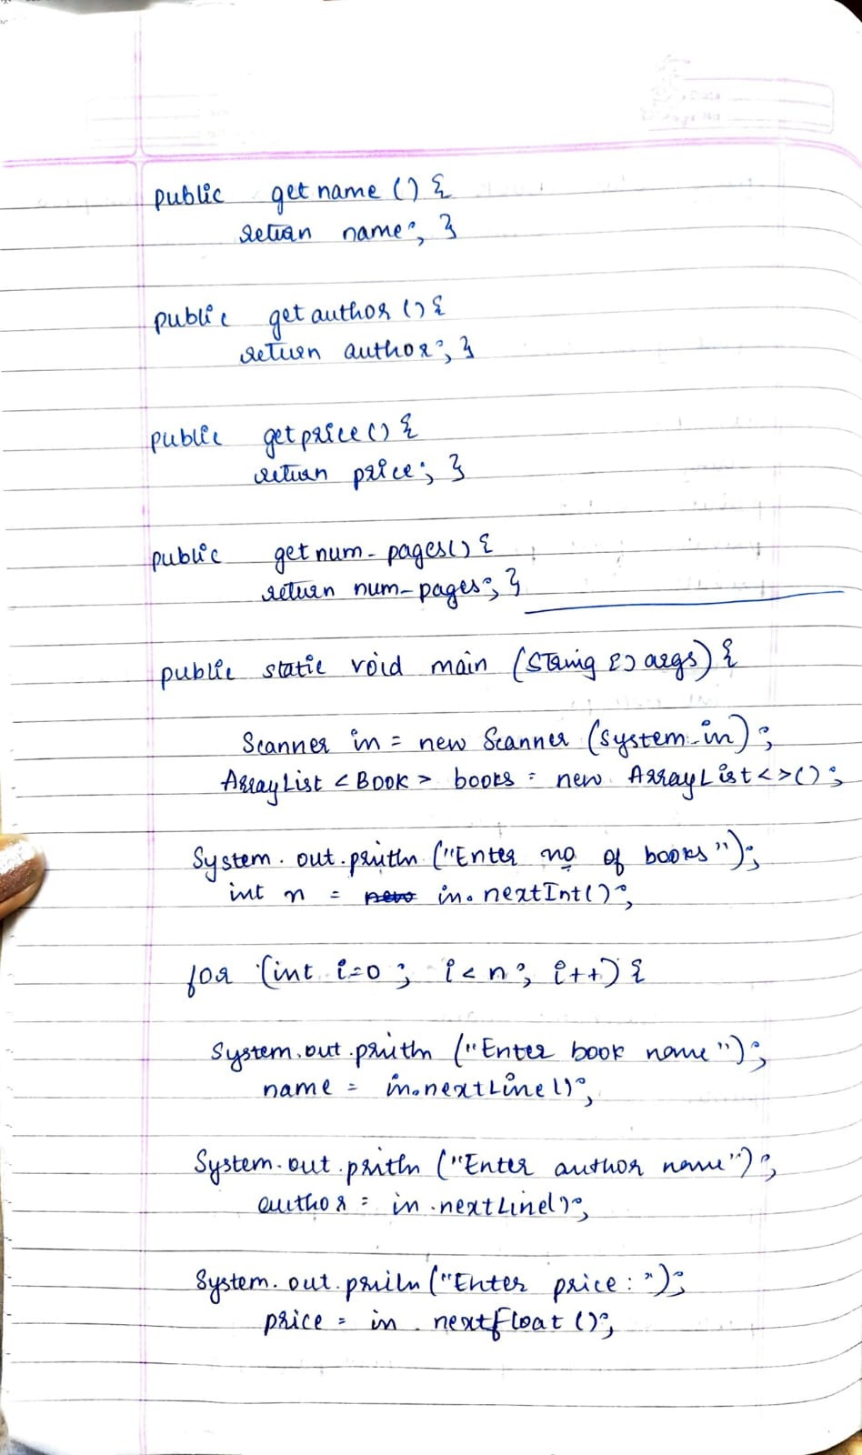 public get name () {
return name; }
public get author () {
return author; }
public get price () {
return price; }
public get num-pages() {
return num-pages; }
public static void main (String [] args) {
Scanner in = new Scanner (System.in);
ArrayList <Book> books = new ArrayList <>();
System.out.println ("Enter no of books");
int n = new in.nextInt();
for (int i=0; i<n; i++) {
System.out.println ("Enter book name");
name = in.nextLine();
System.out.println ("Enter author name");
author = in.nextLine();
System.out.println ("Enter price: ");
price = in.nextfloat ();